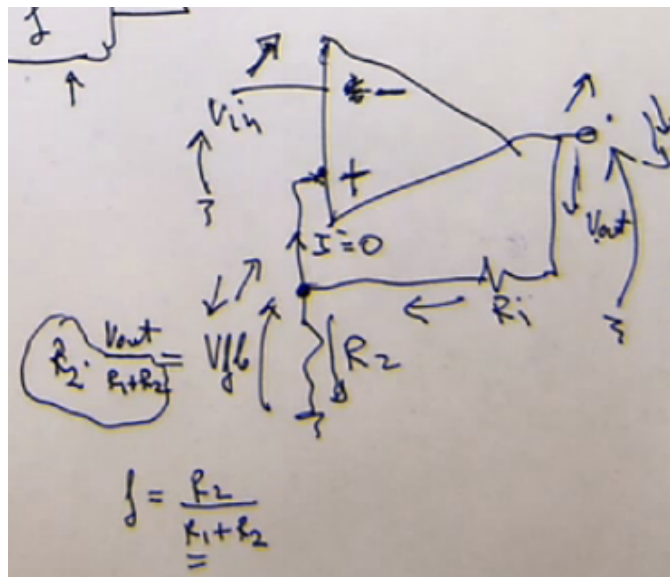 f
Vin
−
+
I⁻=0
Vout
Ri
R2. Vout/(R1+R2) = Vfb
R2
f = R2/(R1+R2)